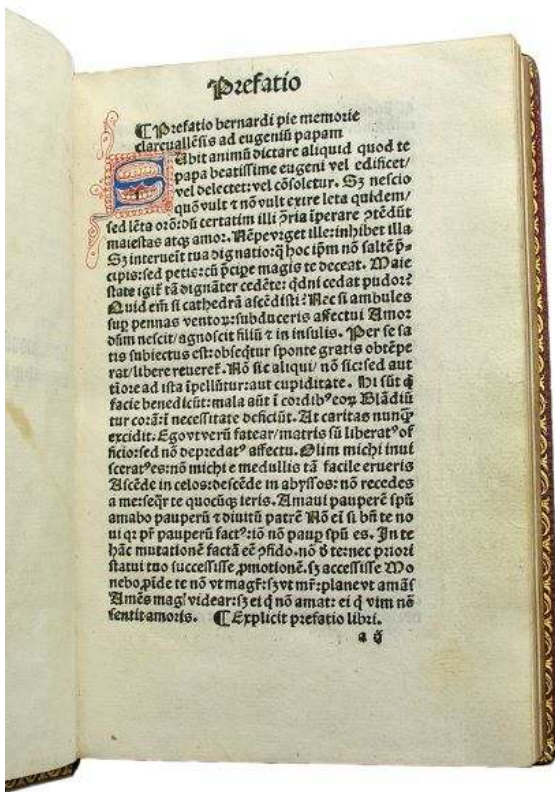 Prefatio
¶ Prefatio bernardi pie memorie
clareuallēsis ad eugeniū papam
Ubit animū dictare aliquid quod te
papa beatissime eugeni vel edificet/
vel delectet: vel cōsoletur. Sꝫ nescio
quō vult ⁊ nō vult exire leta quidem/
sed lēta orō: dū certatim illi ꝯ̄ria īperare ꝓtēdūt
maiestas atqꝫ amor. Nēpe vrget ille: inhibet illa
Sꝫ interueīt tua dignatio: q̄ hoc ip̄m nō saltē p̄-
cipis: sed petis: cū p̄cipe magis te deceat. Maie
state igit̄ tā dignāter cedēte: qdni cedat pudor?
Quid em̄ si cathedrā ascēdisti? Nec si ambules
suꝑ pennas ventoꝝ: subduceris affectui Amor
dūm nescit/ agnoscit filiū ⁊ in insulis. Per se sa
tis subiectus est: obseq̄tur sponte gratis obtēpe
rat/ libere reueret̄. Nō sic aliqui/ nō sic: sed aut
tīore ad ista īpellūtur: aut cupiditate. Hi sūt q̄
facie benedicūt: mala aūt ī cordibꝰ eoꝝ Blādiū
tur corā: ī necessitate deficiūt. At caritas nunqꝫ̄
excidit. Ego vt verū fatear/ matris sū liberatꝰ of
ficio: sed nō depredatꝰ affectu. Olim michi inui
sceratꝰ es: nō michi e medullis tā facile erueris
Ascēde in celos: descēde in abyssos: nō recedes
a me: seq̄r te quocūqꝫ ieris. Amaui pauperē sp̄ū
amabo pauperū ⁊ diuitū patrē Nō ei si bn̄ te no
ui qꝛ pr̄ pauperū factꝰ: iō nō pauꝑ sp̄ū es. In te
hāc mutationē factā eē ꝯfido. nō ō te: nec priori
statui tuo successisse ꝓmotionē. sꝫ accessisse Mo
nebo ꝓide te nō vt magr̄: sꝫ vt mr̄: plane vt amās
Amēs magꝭ videar: sꝫ ei q̄ nō amat: ei q̄ vim nō
sentit amoris. ¶ Explicit prefatio libri.
a ij